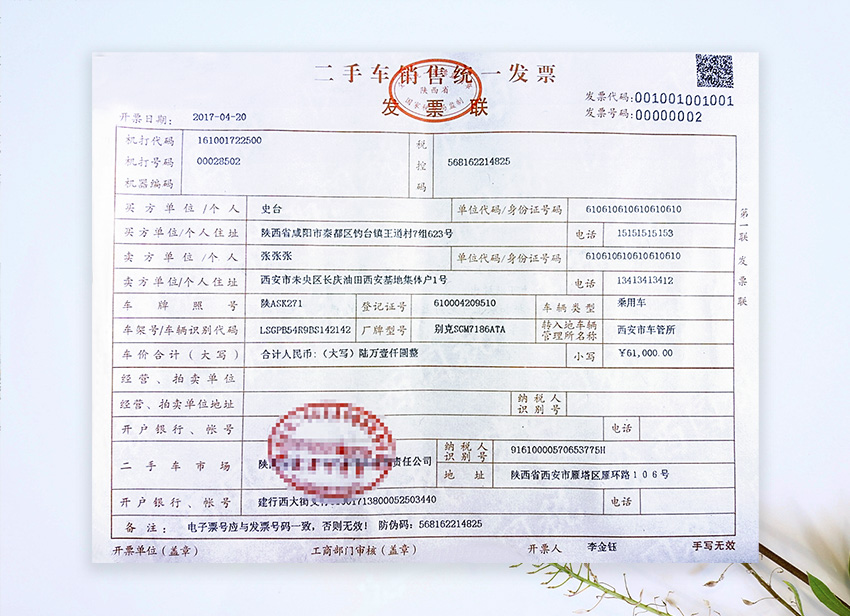 二手车销售统一发票
陕西省
发票联
发票代码:001001001001
发票号码:00000002
开票日期: 2017-04-20
机打代码 161001722500
机打号码 00028502
机器编码
税控码 568162214825
买方单位/个人 史台 单位代码/身份证号码 610610610610610610
买方单位/个人住址 陕西省咸阳市秦都区钓台镇王道村7组623号 电话 15151515153
卖方单位/个人 张张张 单位代码/身份证号码 610610610610610610
卖方单位/个人住址 西安市未央区长庆油田西安基地集体户1号 电话 13413413412
车牌照号 陕ASK271 登记证号 610004209510 车辆类型 乘用车
车架号/车辆识别代码 LSGPB54R9BS142142 厂牌型号 别克SGM7186ATA 转入地车辆管理所名称 西安市车管所
车价合计(大写) 合计人民币:(大写)陆万壹仟圆整 小写 ¥61,000.00
经营、拍卖单位
经营、拍卖单位地址 纳税人识别号
开户银行、帐号 电话
二手车市场 陕 责任公司 纳税人识别号 91610000570653775H
地址 陕西省西安市雁塔区雁环路106号
开户银行、帐号 建行西大街支行 1713800052503440 电话
备注: 电子票号应与发票号码一致,否则无效! 防伪码:568162214825
开票单位(盖章) 工商部门审核(盖章) 开票人 李金钰 手写无效
第一联发票联